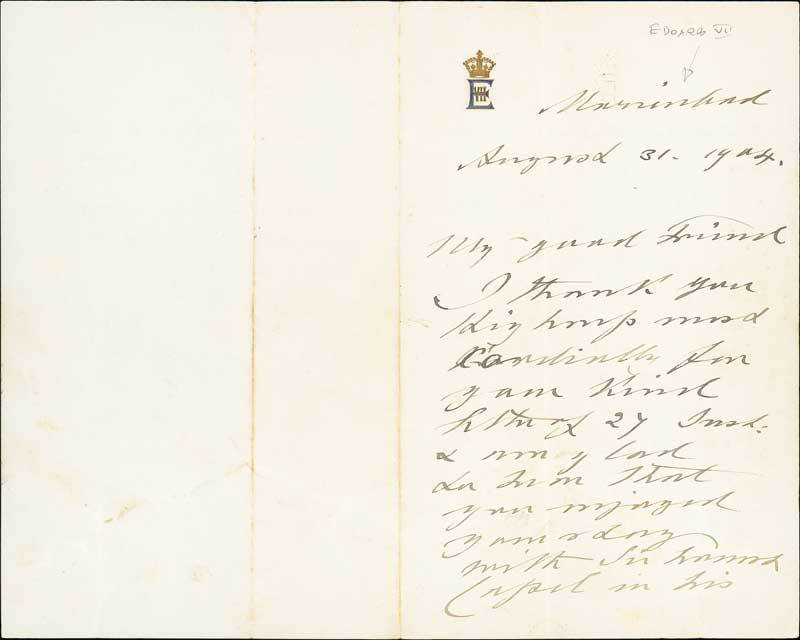 EDOARDO VII
E VII
Marienbad
August 31. 1904.
My good Friend
I thank your
Highness most
cordially for
your kind
letter of 27 Inst:
& am glad
to hear that
you enjoyed
your stay
with Sir
in his